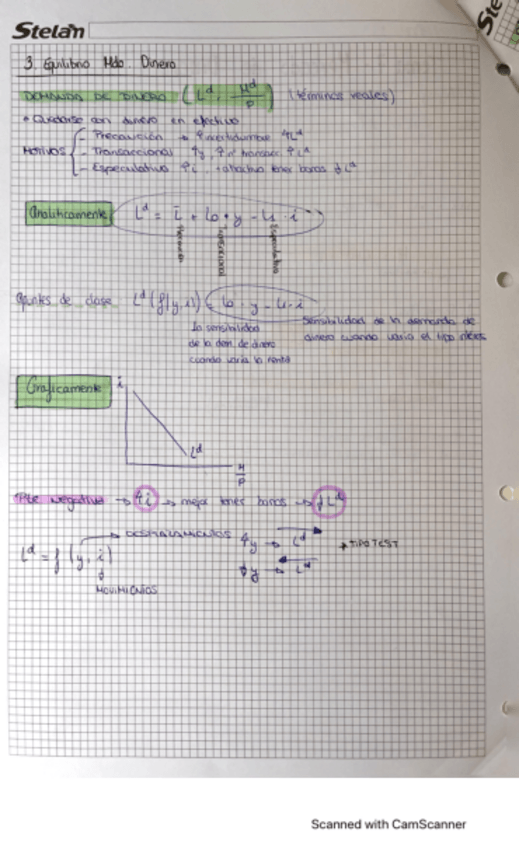 Stelan
Ste
3. Equilibrio Mdo. Dinero
DEMANDA DE DINERO (L^d, M^d/P) (términos reales)
• Quedarse con dinero en efectivo
MOTIVOS { - Precaución → ↑incertidumbre ↑L^d
- Transaccional ↑y, ↑nº transacc ↑L^d
- Especulativo ↑i, +atractivo tener bonos ↓L^d
Analíticamente L^d = L̄ + l₀ · y - l₁ · i
Precaución
Transaccional
Especulativo
Apuntes de clase L^d (f(y, i)) = l₀ · y - l₁ · i
La sensibilidad
de la dem. de dinero
cuando varia la renta
Sensibilidad de la demanda de
dinero cuando varia el tipo
Gráficamente
i
L^d
M/P
Pte negativa → ↑i → mejor tener bonos → ↓L^d
DESPLAZAMIENTOS ↑y → L^d
L^d = f (y, i)
↓y → L^d
* TIPO TEST
MOVIMIENTOS
Scanned with CamScanner